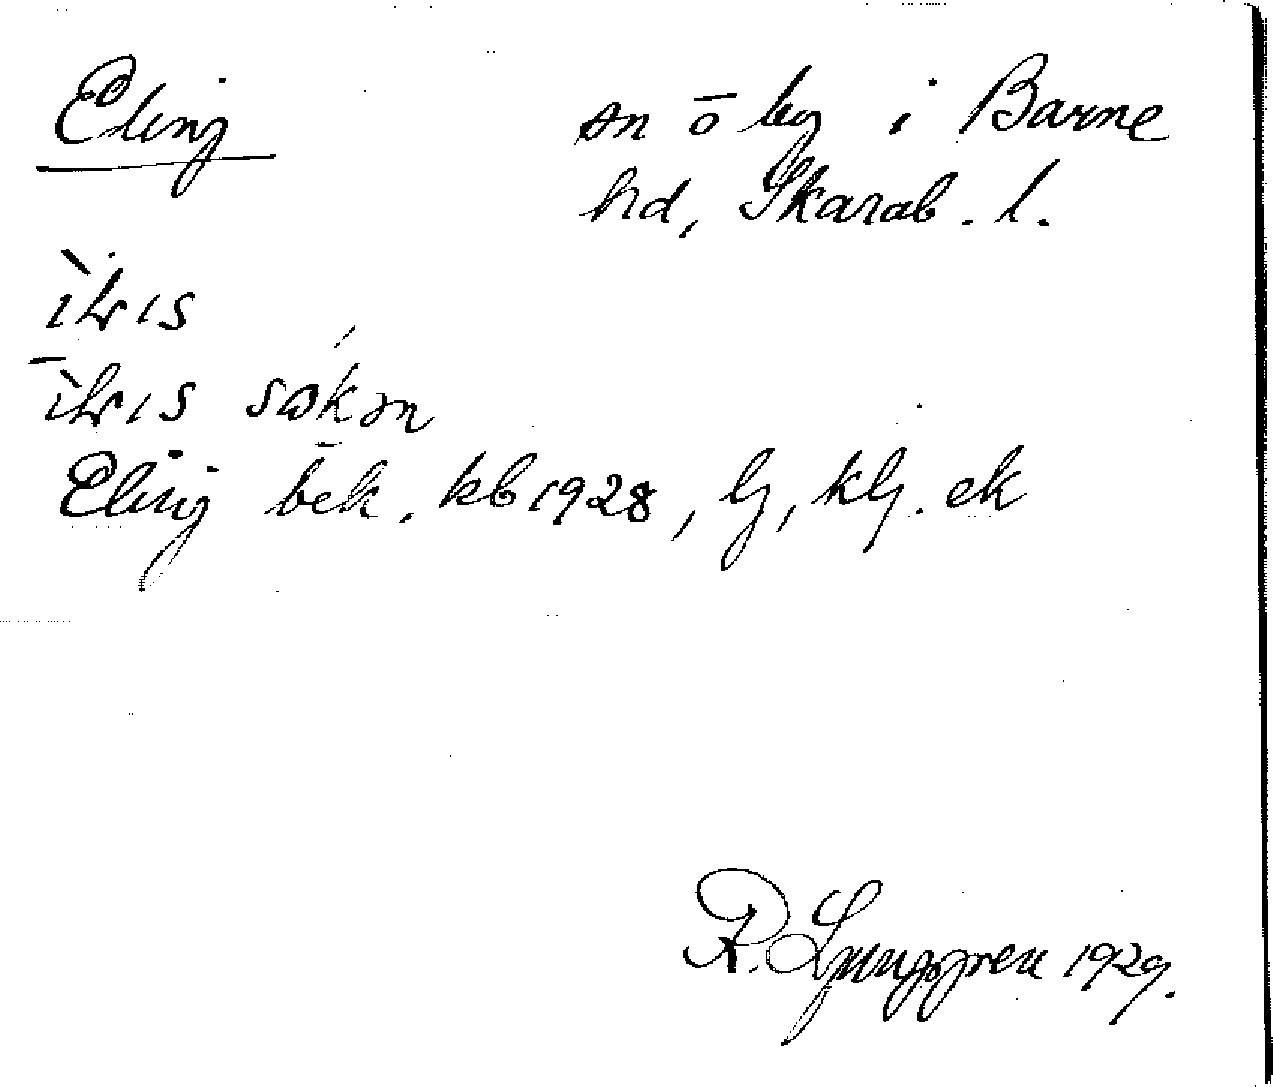 Eling sn o by i Barne
hd, Skarab. l.
Eling bek. kb 1928, lj, klj. ek
R. Ljunggren 1929.